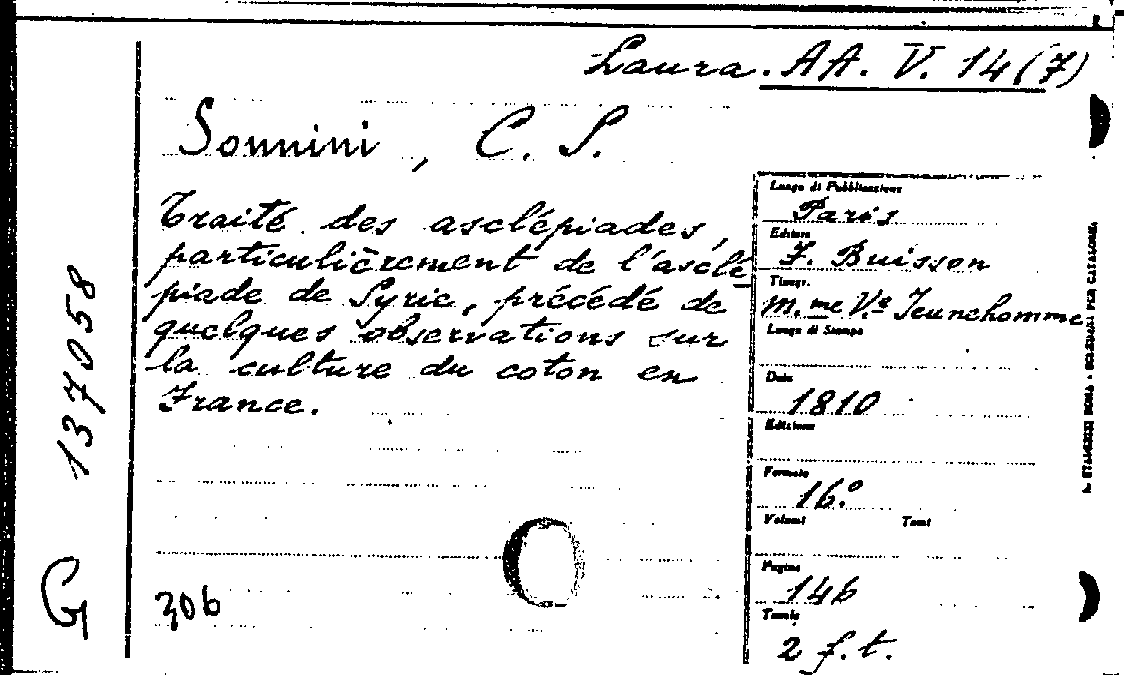 Laura. AA. V. 14 (7)
Sonnini, C. S.
Traité des asclépiades,
particulièrement de l'asclé
piade de Syrie, précédé de
quelques observations sur
la culture du coton en
France.
306
G 137058
Luogo di Pubblicazione
Paris
Editore
F. Buisson
Tipogr.
M.me Ve Jeunehomme
Luogo di Stampa
Data
1810
Edizione
Formato
16.o
Volumi Tomi
Pagine
146
Tavole
2 f. t.